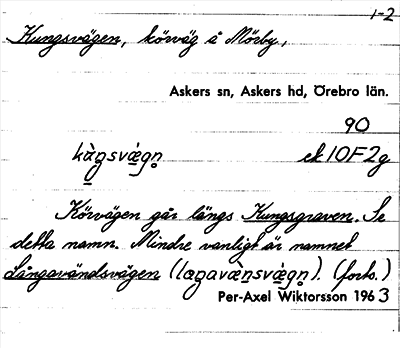 1-2
Kungsvägen, körväg å Mörby,
Askers sn, Askers hd, Örebro län.
90
ek 10F2g
Körvägen går längs Kungsgraven. Se
detta namn. Mindre vanligt är namnet
Långavändsvägen (forts.)
Per-Axel Wiktorsson 1963